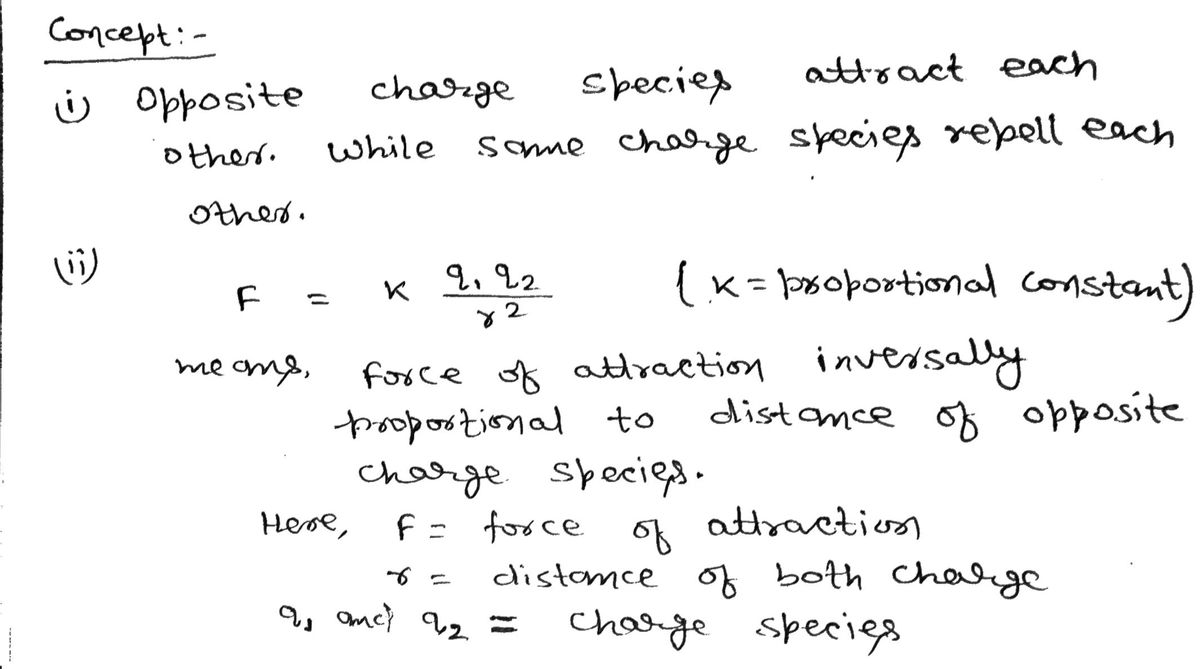 Concept:-
(i) Opposite charge species attract each
other. While same charge species repell each
other.
(ii)
F = K q₁ q₂ / r² ( K = proportional constant)
means, force of attraction inversally
proportional to distance of opposite
charge species.
Here, F = force of attraction
r = distance of both charge
q₁ and q₂ = charge species